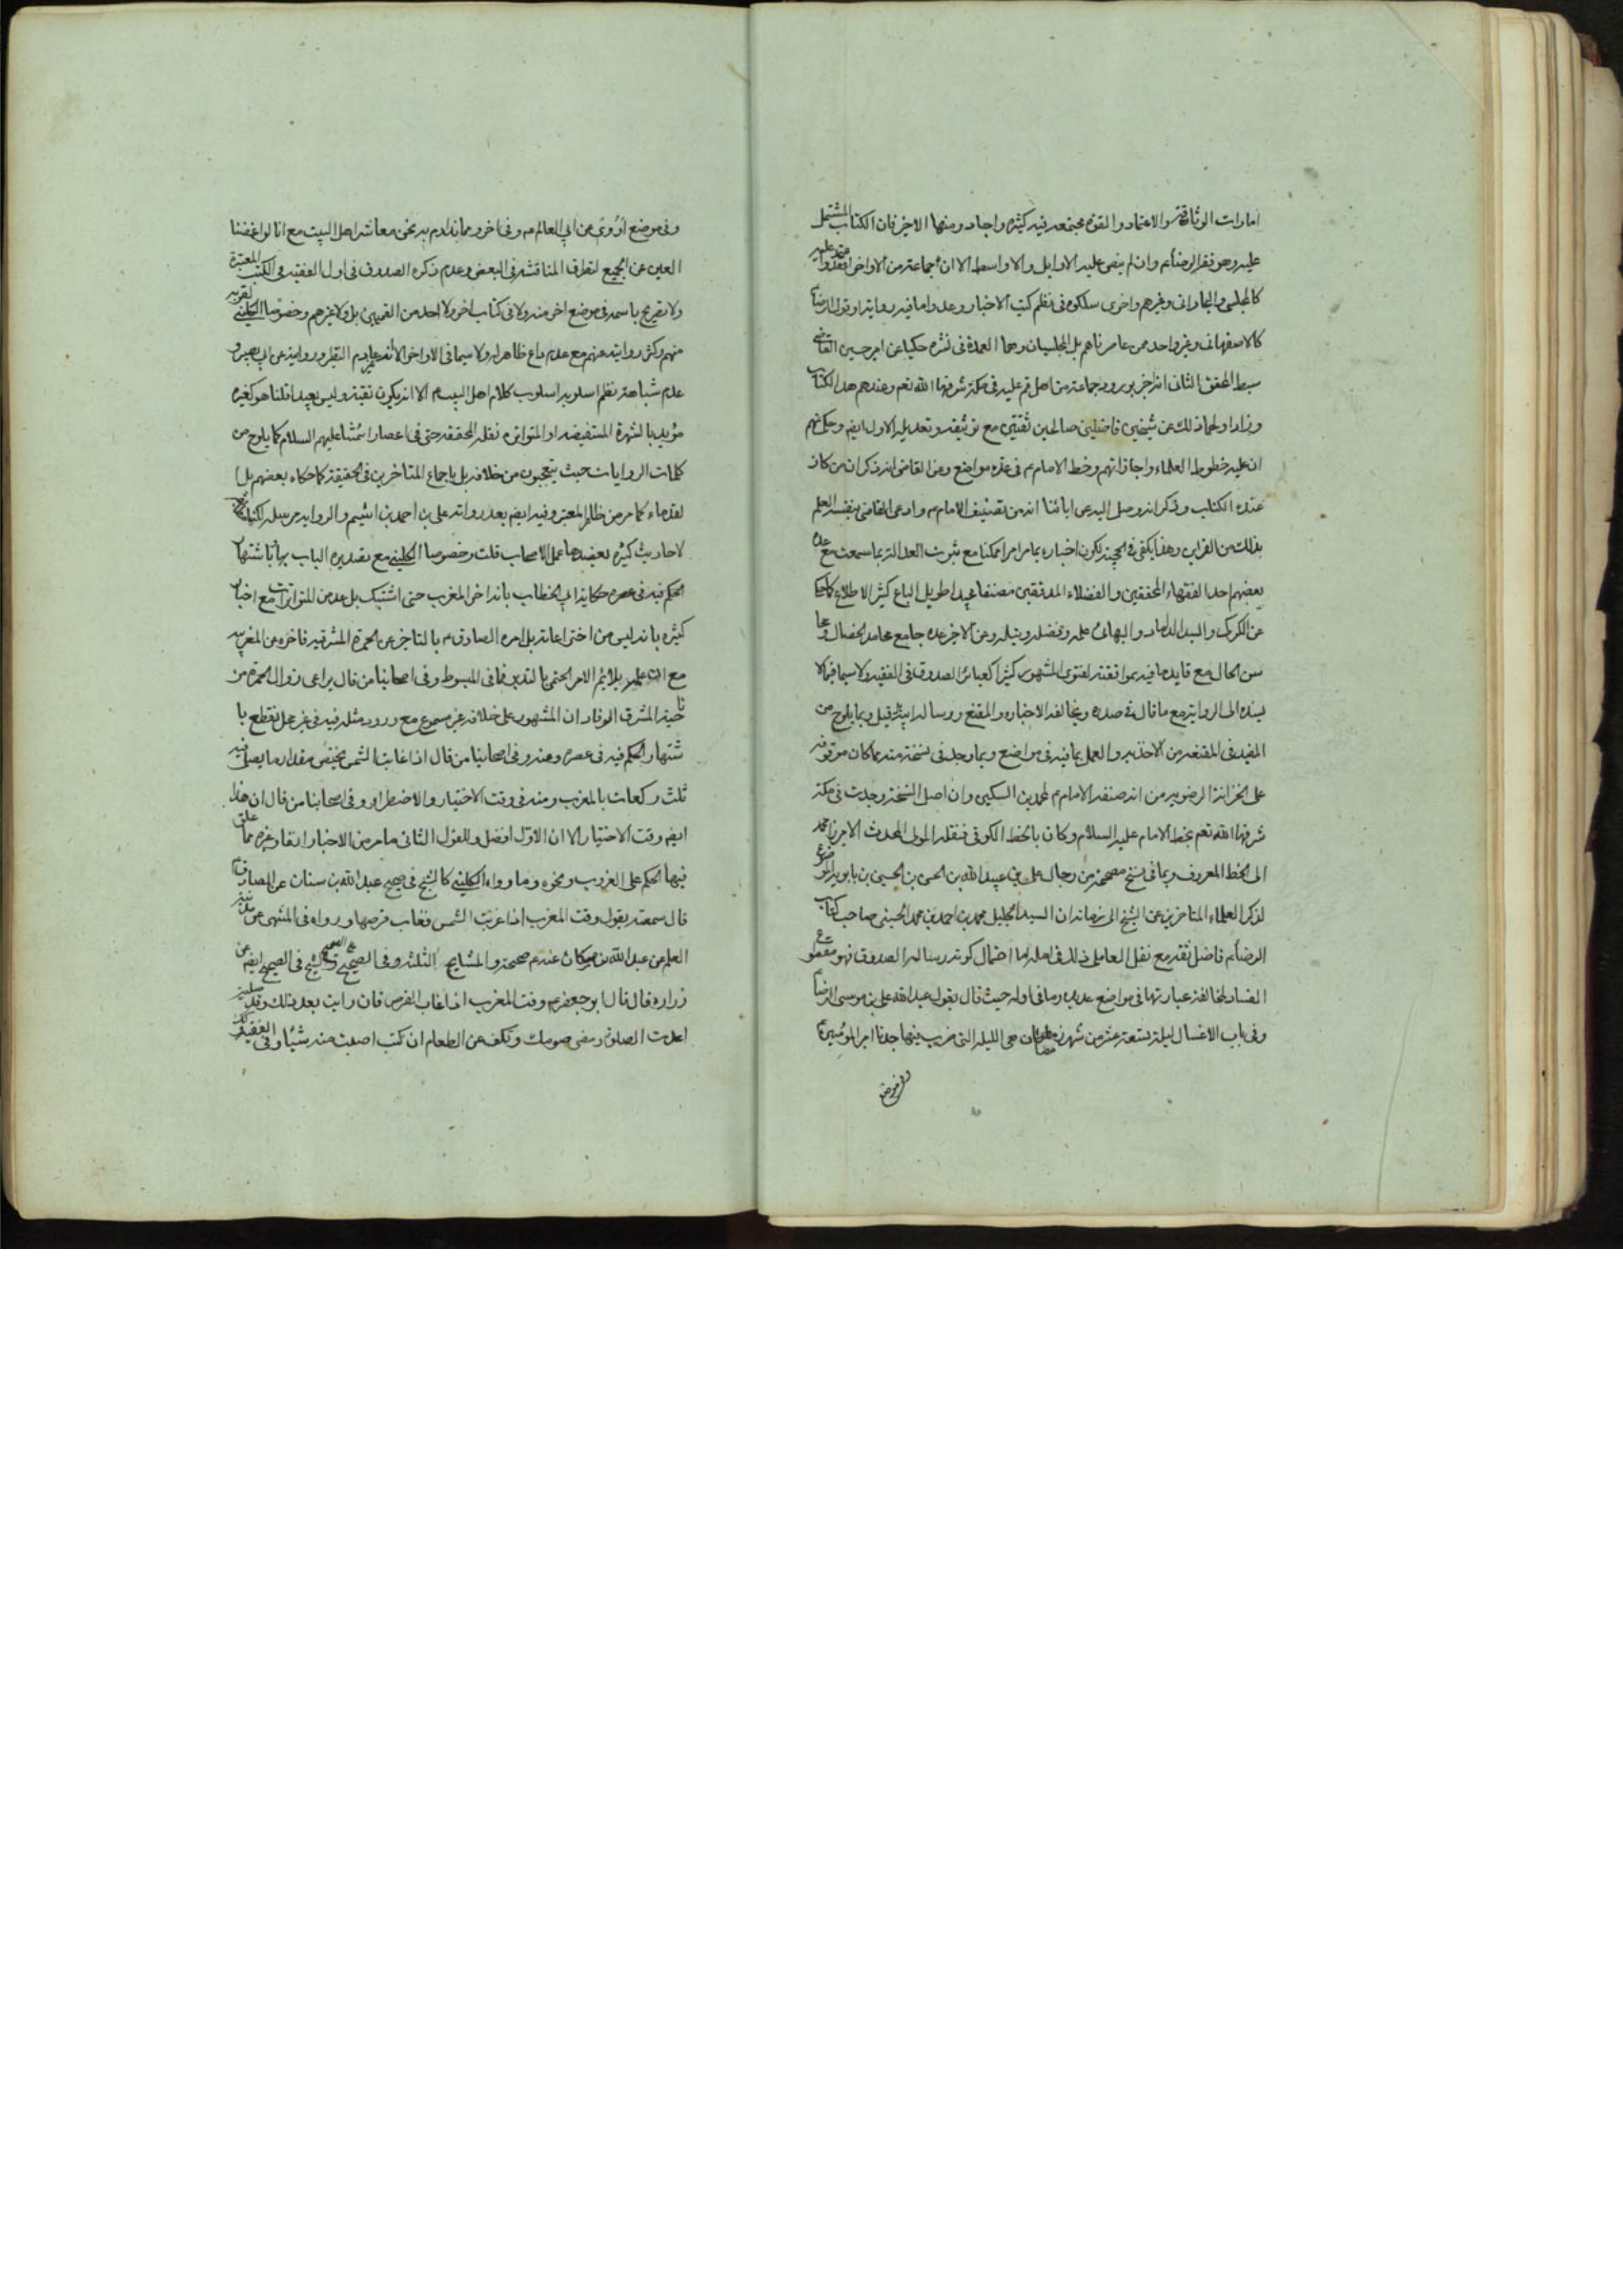 امارات الوثاقة والاعتماد والقوة مجتمعة فيه كثيرة واجاد ومنها الاخير فان الكتاب المشتمل
عليه وهو فقه الرضا ع وان لم ينص عليه الاوايل والاواسط الا ان جماعة من الاواخر اعتمدوا عليه
كالمجلسي وغيرهم واخرى سلكوه في نظم كتب الاخبار وعدوا ما فيه رواية او قول الرضا ع
كالاصفهاني وغير واحد ممن عاصرناهم بل المجلسيان وهما العمدة في نشره حكيا عن امير حسين القاضي
سبط المحقق الثاني انه اخبر بورود جماعة من اهل قم عليه في مكة شرفها الله تعم وعندهم هذا الكتاب
وزاد اولهما ذلك عن شيخين فاضلين صالحين ثقتين مع توثيقه وتعديله الاول ايضم وحكى انهم
ان عليه خطوط العلماء واجازاتهم وخط الامام ع في عدة مواضع وعن القاضي انه ذكر ان من كان
عنده الكتاب وذكر انه وصل اليه عن ابائنا انه من تصنيف الامام ع وادعى القاضي بنفسه العلم
بذلك من القراين وهذا يكفي في الحجية لكون اخباره بما مر امرا ممكنا مع ثبوت العدالة بما سمعت مع عد
بعضهم احد الفقهاء المحققين والفضلاء المدققين مصنفا مجيدا طويل الباع كثير الاطلاع كما حكا
عن الكركي والسيد الداماد والبهائي علمه وفضله ونبله وعن الاخر عده جامع محامد الخصال ومحا
سن الحال مع تايده ما فيه بموافقته لفتوى المشهور كثيرا كعبائر الصدوق في الفقيه ولا سيما فيما لا
يسنده الى الرواية مع ما قال في صدره وبمخالفة الاخباره والمقنع ورسالة ابيه قيل وبما يلوح من
المفيد في المقنعة من الاخذ به والعمل بما فيه في مواضع وبما وجد في نسخة منه مما كان موقوفه
على الخزانة الرضوية من انه صنفه الامام ع لمحمد بن السكين وان اصل النسخة وجدت في مكة
شرفها الله تعم بخط الامام عليه السلام وكان بالخط الكوفي فنقله المولى المحدث الاميرزا محمد
الى الخط المعروف وبما في نسخ مصححة من رجال علي بن عبيد الله بن الحسن بن الحسين بن بابويه الموضوع
لذكر العلماء المتاخرين عن الشيخ الى زمانه ان السيد الجليل محمد بن احمد بن محمد الحسيني صاحب كتاب
الرضا ع فاضل ثقة مع نقل العاملي ذلك في امله اما احتمال كونه رسالة الصدوق فهو مقطوع
الفساد لمخالفة عبارتها في مواضع عديدة وما في اوله حيث قال يقول عبد الله علي بن موسى الرضا ع
وفي باب الاغسال ليلة تسعة عشر من شهر رمضان هي الليلة التي ضرب فيها جدنا امير المؤمنين ع
وفي موضع
وفي موضع اروي عن ابي العالم ع وفي اخر ومما نداوم به نحن معاشر اهل البيت مع انا لو اغمضنا
العين عن الجميع لتطرق المناقشة في البعض وعدم ذكره الصدوق في اول الفقيه في الكتب المعتبرة
ولا تصريح باسمه في موضع اخر منه ولا في كتاب اخر ولا احد من القميين بل ولا غيرهم وخصوصا الكليني لقربه
منهم وكثرة روايته عنهم مع عدم داع ظاهرا له ولا سيما في الاواخر
عدم شباهة نظم اسلوبه اسلوب كلام اهل البيت ع الا انه يكون تقية وليس بعيد اقلنا هو كغيره
مؤيد بالشهرة المستفيضة او المتواترة نقلا المحققة حتى في اعصار ائمتنا عليهم السلام كما يلوح من
كلمات الروايات حيث يتعجبون من خلافه بل باجماع المتاخرين في الحقيقة كما حكاه بعضهم بل ا
لقدماء كما مر من ظاهر المعتبر وفيه ايضم بعد رواية علي بن احمد بن اشيم والرواية مرسلة لكنها
لاحاديث كثيرة يعضدها عمل الاصحاب قلت وخصوصا الكليني مع تصديره الباب بها باشتهار
الحكم فيه في عصره حكاية ابي الخطاب بانه اخر المغرب حتى اشتبك بل عد من المتواترات مع اخبار
كثيرة بانه ليس من اختراعاته بل امره الصادق ع بالتاخر عن الحمرة المشرقية فاخره عن المغربية
مع ان يلائم الامر الحتمي بالتدين فما في المبسوط وفي اصحابنا من قال يراعي زوال الحمرة من
ناحية المشرق الوفاد ان المشهور على خلافه غير مسموع مع ورود مثله فيه في غير محل نقطع با
شتهار الحكم فيه في عصره ومنه وفي اصحابنا من قال اذا غابت الشمس يختص مقدار ما يصلى فيه
ثلث ركعات بالمغرب ومنه في وقت الاختيار والاضطرار وفي اصحابنا من قال ان هذا
ايضم وقت الاختيار الا ان الاول افضل وللقول الثاني ما مر من الاخبار انفا وغيره مما علق
فيها الحكم على الغروب ونحوه وما رواه الكليني كالشيخ في صحيح عبد الله بن سنان عن الصادق ع
قال سمعته يقول وقت المغرب اذا غربت الشمس فغاب قرصها ورواه في المنتهى عن
العلم من عبد الله بن مسكان عندهم صحيحة والمشايخ الثلثة وفي الصحيح والشيخ في الصحيح ايضم عن
زرارة قال قال ابو جعفر ع وقت المغرب اذا غاب القرص فان رايت بعد ذلك وقد صليت
اعدت الصلوة ومضى صومك وتكف عن الطعام ان كنت اصبت منه شيئا وفي الفقيه